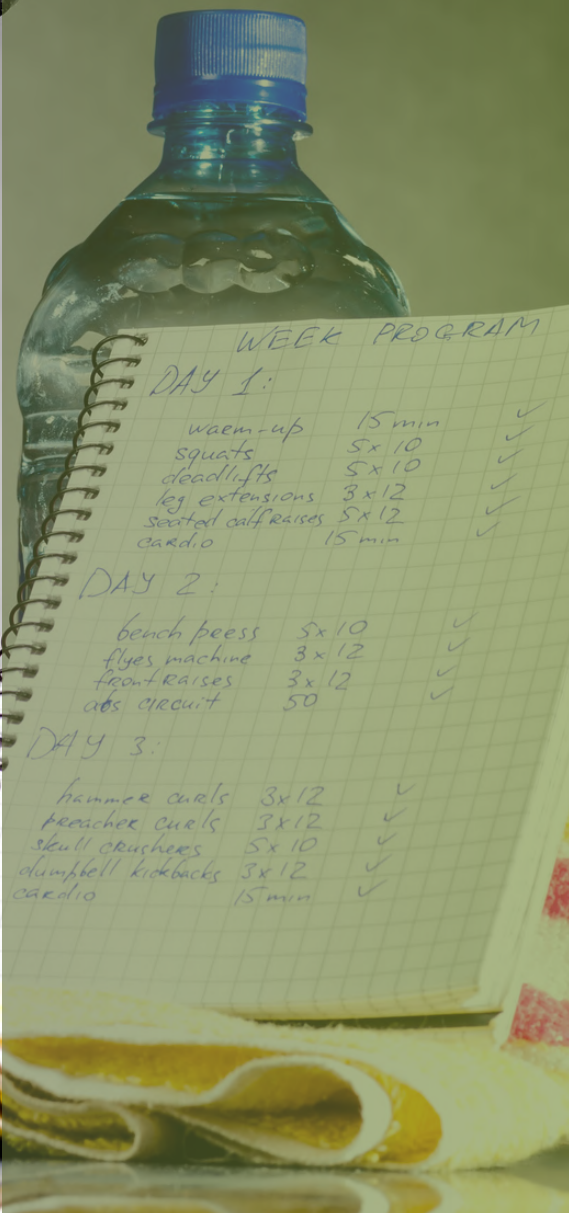 WEEK PROGRAM
DAY 1:
warm-up 15 min ✓
squats 5x10 ✓
deadlifts 5x10 ✓
leg extensions 3x12 ✓
seated calf raises 5x12 ✓
cardio 15 min ✓
DAY 2:
bench press 5x10 ✓
flyes machine 3x12 ✓
front raises 3x12 ✓
abs circuit 50 ✓
DAY 3:
hammer curls 3x12 ✓
preacher curls 3x12 ✓
skull crushers 5x10 ✓
dumpbell kickbacks 3x12 ✓
cardio 15 min ✓